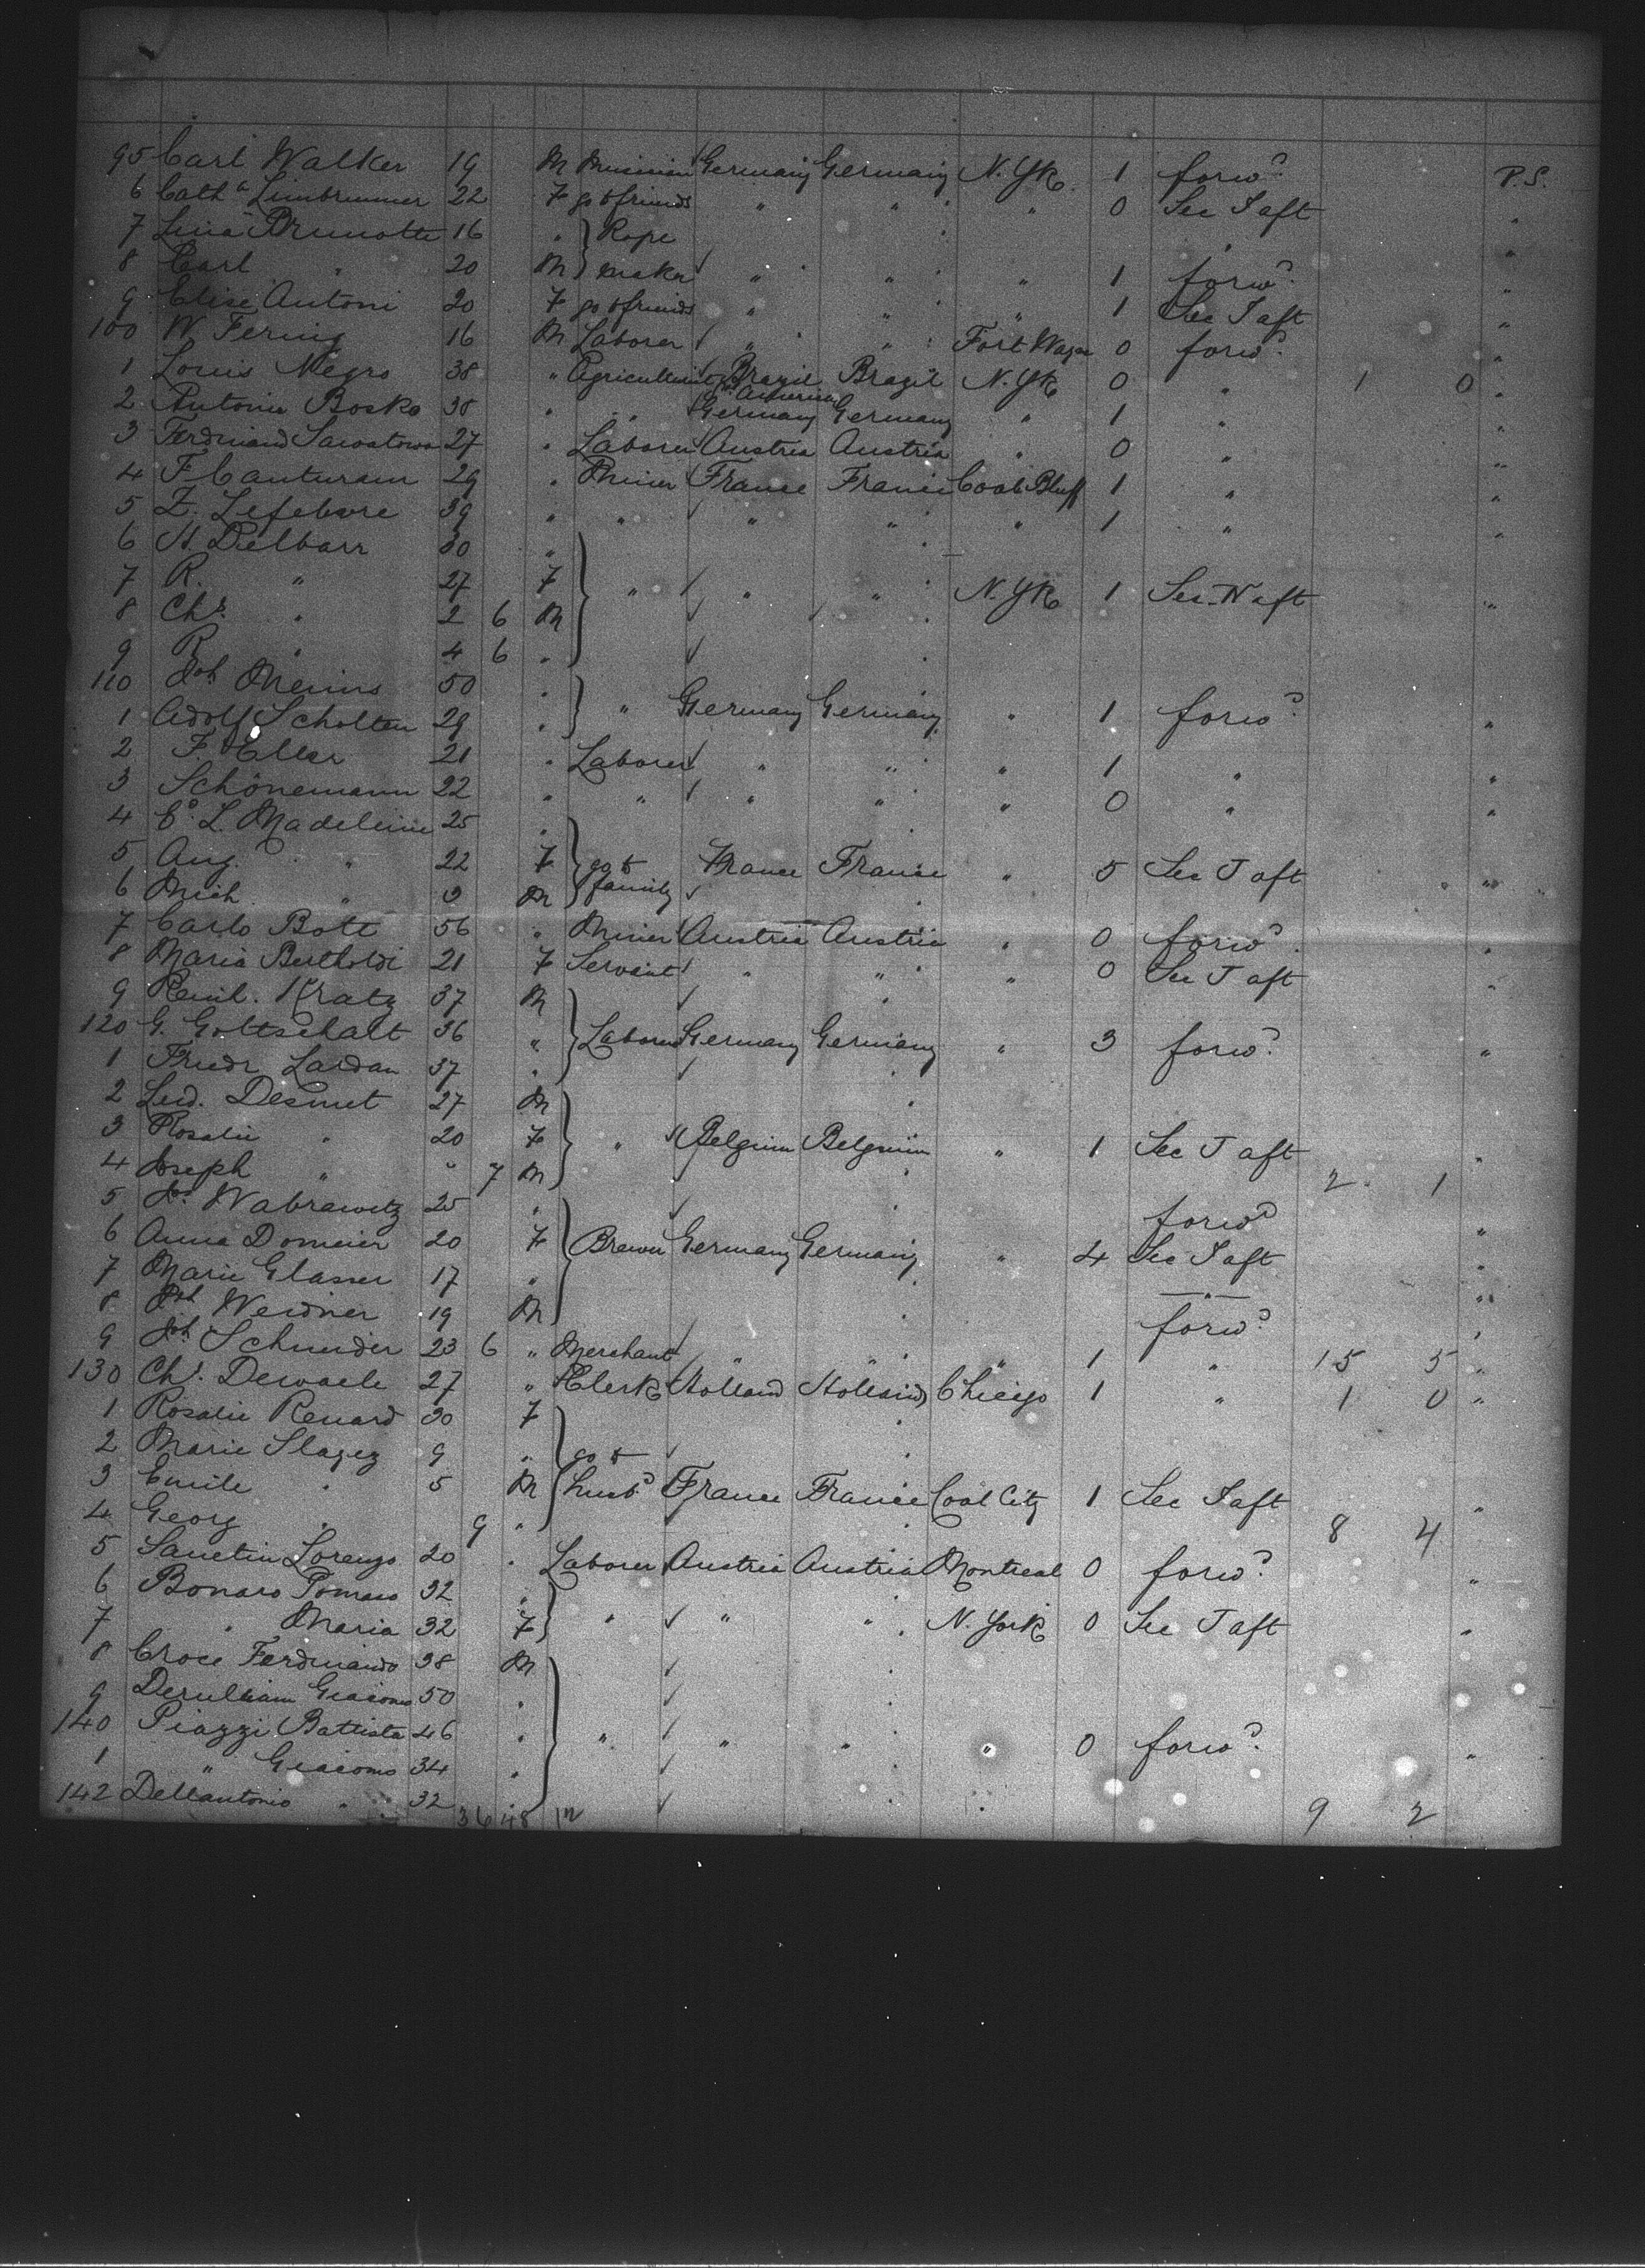 95 Carl Walker 19 M Musician Germany Germany N. Yk. 1 forwd P.S.
6 Cath 22 F go to friends " " " 0 See T aft "
7 Lina Brunotte 16 " Rope "
8 Carl " 20 M maker " " " 1 forwd "
9 Elise Antoni 20 F go to friends " " " 1 See T aft "
100 W Fering 16 M Laborer " " Fort Wayne 0 forwd "
1 Louis Negro 38 " Brazil Brazil N. Yk 0 " 1 0
America
2 Bosko 38 " " Germany Germany " 1 " "
3 Ferdinand 27 " Laborer Austria Austria " 0 " "
4 F 29 " Miner France France Coal Bluff 1 " "
5 Z. Lefebvre 39 " " " " " 1 " "
6 H. Delbarr 30 "
7 R. " 27 F " " " N. Yk 1 See N aft "
8 Chs. " 2 6 M
9 R " 4 6 "
110 Joh 50 "
1 Adolf Scholten 29 " " Germany Germany " 1 forwd "
2 F. Eller 21 " Laborer " " " 1 " "
3 Schönemann 22 " " " " " 0 " "
4 L. Madeleine 25 "
5 Aug. " 22 F go to France France " 5 See T aft "
6 Mich. " 9 M family
7 Carlo Bott 56 " Miner Austria Austria " 0 forwd "
8 Maria Bertholdi 21 F Servant " " " 0 See T aft "
9 Kratz 37 M
120 G. Gottschalt 36 " Laborer Germany Germany " 3 forwd "
1 Friedr Lardan 37 "
2 Desmet 27 M
3 Rosalie " 20 F " Belgium Belgium " 1 See T aft "
4 Joseph " " 7 M 2 1
5 Wabrawitz 25 " forwd "
6 Anna Domeier 20 F Brewer Germany Germany " 4 See T aft "
7 Marie Glasser 17 " " "
8 Joh Weidner 19 M forwd "
9 Joh Schneider 23 6 " Merchant " " " 1 " 15 5 "
130 Chs. Dewaele 27 " Clerk Holland Holland Chicago 1 " 1 0 "
1 Rosalie Renard 30 F
2 Marie Slagez 9 " go to
3 Emile " 5 M husbd France France Coal City 1 See T aft "
4 Georg " 9 " 8 4
5 Lorenzo 20 " Laborer Austria Austria Montreal 0 forwd "
6 Bonaro Tomaso 32 "
7 " Maria 32 F " " " N. York 0 See T aft "
8 Croce Ferdinando 38 M
9 Giacomo 50 "
140 Piazzi Battista 46 " " " " " 0 forwd "
1 " Giacomo 34 "
142 Dellantonio " 32 " 9 2